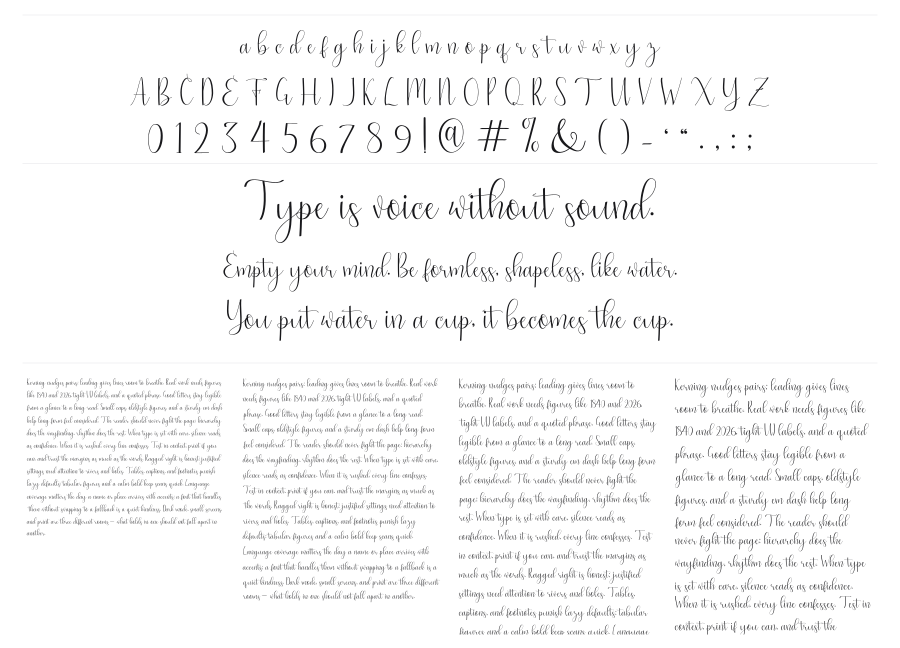 a b c d e f g h i j k l m n o p q r s t u v w x y z
A B C D E F G H I J K L M N O P Q R S T U V W X Y Z
0 1 2 3 4 5 6 7 8 9 ! @ # % & ( ) - ‘ “ . , : ;
Type is voice without sound.
Empty your mind. Be formless, shapeless, like water.
You put water in a cup, it becomes the cup.
Kerning nudges pairs; leading gives lines room to breathe. Real work needs figures
like 1540 and 2026, tight UI labels, and a quoted phrase. Good letters stay legible
from a glance to a long read. Small caps, oldstyle figures, and a sturdy en dash
help long form feel considered. The reader should never fight the page: hierarchy
does the wayfinding, rhythm does the rest. When type is set with care, silence reads
as confidence. When it is rushed, every line confesses. Test in context, print if you
can, and trust the margins as much as the words. Ragged right is honest; justified
settings need attention to rivers and holes. Tables, captions, and footnotes punish
lazy defaults; tabular figures and a calm bold keep scans quick. Language
coverage matters the day a name or place arrives with accents; a font that handles
them without swapping to a fallback is a quiet kindness. Dark mode, small screens,
and print are three different rooms — what holds in one should not fall apart in
another.
Kerning nudges pairs; leading gives lines room to breathe. Real work
needs figures like 1540 and 2026, tight UI labels, and a quoted
phrase. Good letters stay legible from a glance to a long read.
Small caps, oldstyle figures, and a sturdy en dash help long form
feel considered. The reader should never fight the page: hierarchy
does the wayfinding, rhythm does the rest. When type is set with care,
silence reads as confidence. When it is rushed, every line confesses.
Test in context, print if you can, and trust the margins as much as
the words. Ragged right is honest; justified settings need attention to
rivers and holes. Tables, captions, and footnotes punish lazy
defaults; tabular figures and a calm bold keep scans quick.
Language coverage matters the day a name or place arrives with
accents; a font that handles them without swapping to a fallback is a
quiet kindness. Dark mode, small screens, and print are three different
rooms — what holds in one should not fall apart in another.
Kerning nudges pairs; leading gives lines room to
breathe. Real work needs figures like 1540 and 2026,
tight UI labels, and a quoted phrase. Good letters stay
legible from a glance to a long read. Small caps,
oldstyle figures, and a sturdy en dash help long form
feel considered. The reader should never fight the
page: hierarchy does the wayfinding, rhythm does the
rest. When type is set with care, silence reads as
confidence. When it is rushed, every line confesses. Test
in context, print if you can, and trust the margins as
much as the words. Ragged right is honest; justified
settings need attention to rivers and holes. Tables,
captions, and footnotes punish lazy defaults; tabular
figures and a calm bold keep scans quick. Language
Kerning nudges pairs; leading gives lines
room to breathe. Real work needs figures like
1540 and 2026, tight UI labels, and a quoted
phrase. Good letters stay legible from a
glance to a long read. Small caps, oldstyle
figures, and a sturdy en dash help long
form feel considered. The reader should
never fight the page: hierarchy does the
wayfinding, rhythm does the rest. When type
is set with care, silence reads as confidence.
When it is rushed, every line confesses. Test in
context, print if you can, and trust the